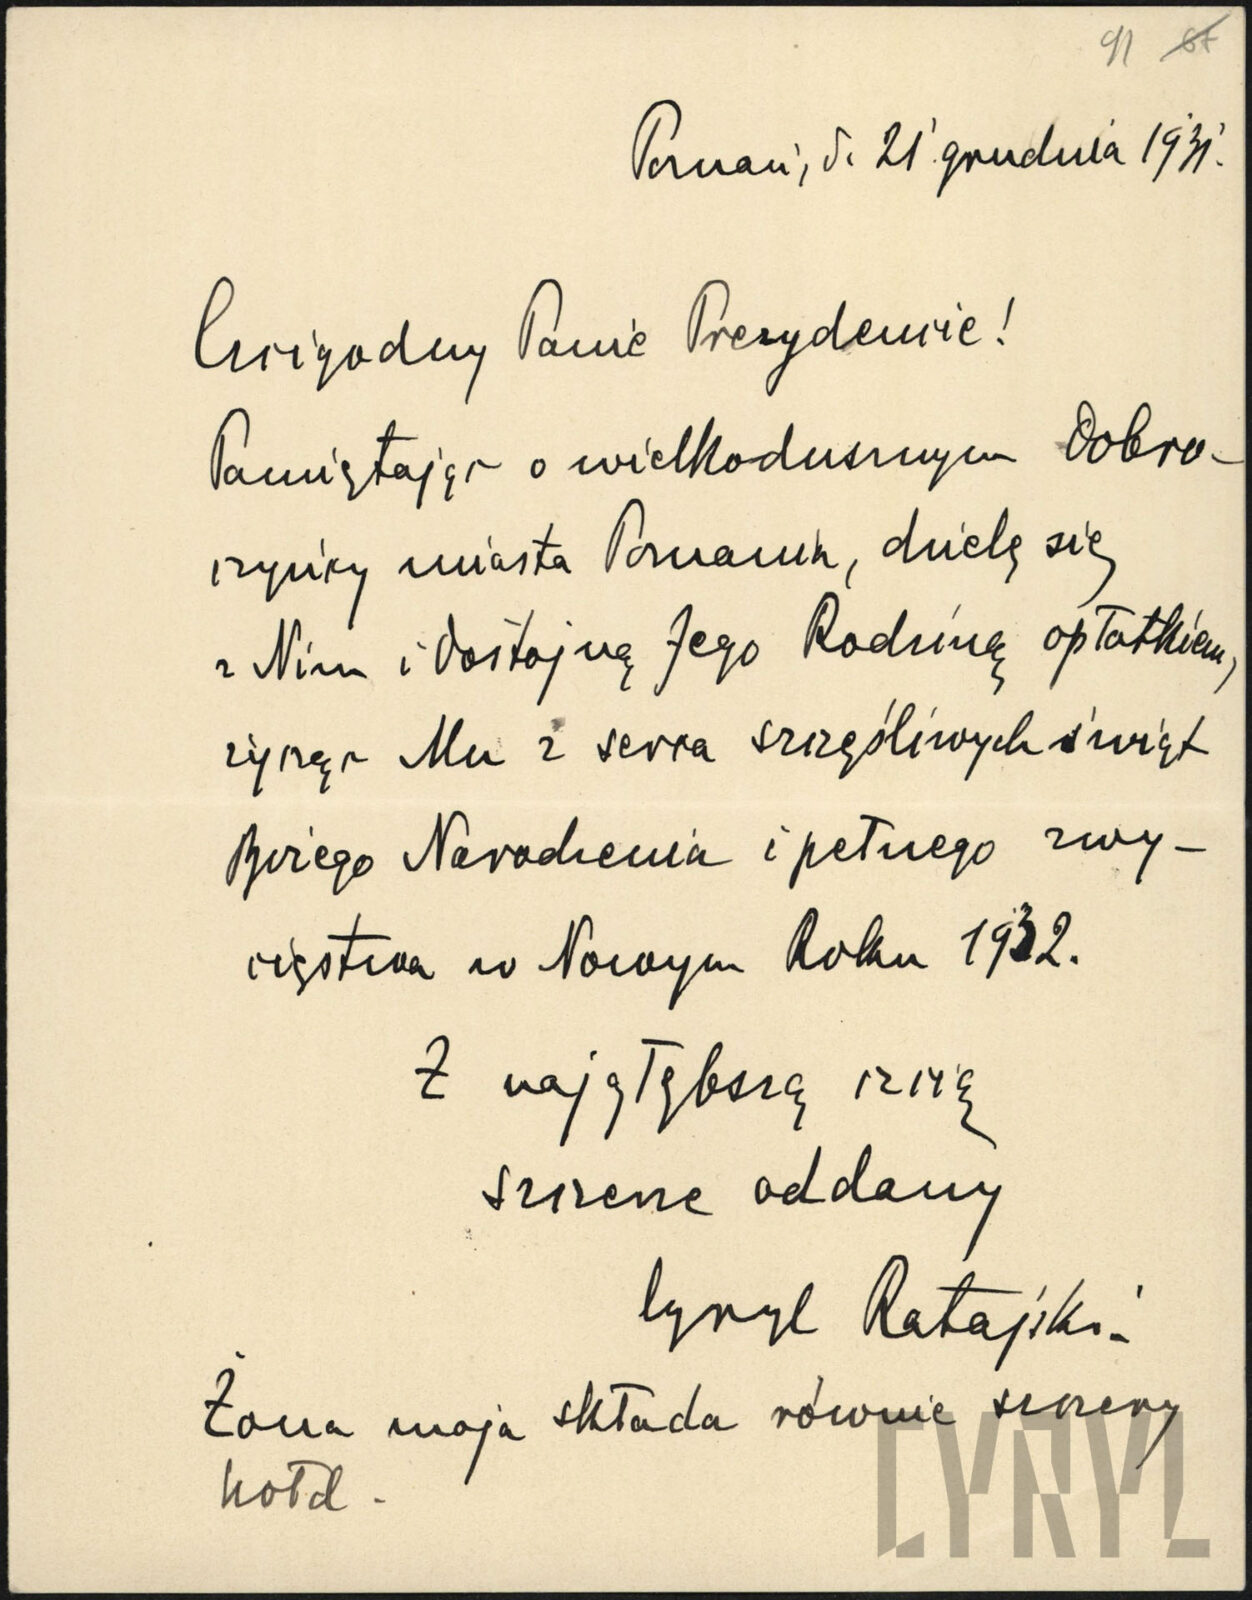 91 67
Poznań, d. 21 grudnia 1931.
Czcigodny Panie Prezydencie!
Pamiętając o wielkodusznym Dobro-
czyńcy miasta Poznania, dzielę się
z Nim i Dostojną Jego Rodziną opłatkiem,
życząc Mu z serca szczęśliwych świąt
Bożego Narodzenia i pełnego zwy-
cięstwa w Nowym Roku 1932.
Z najgłębszą czcią
szczerze oddany
Cyryl Ratajski
Żona moja składa równie szczery
hołd.
CYRYL